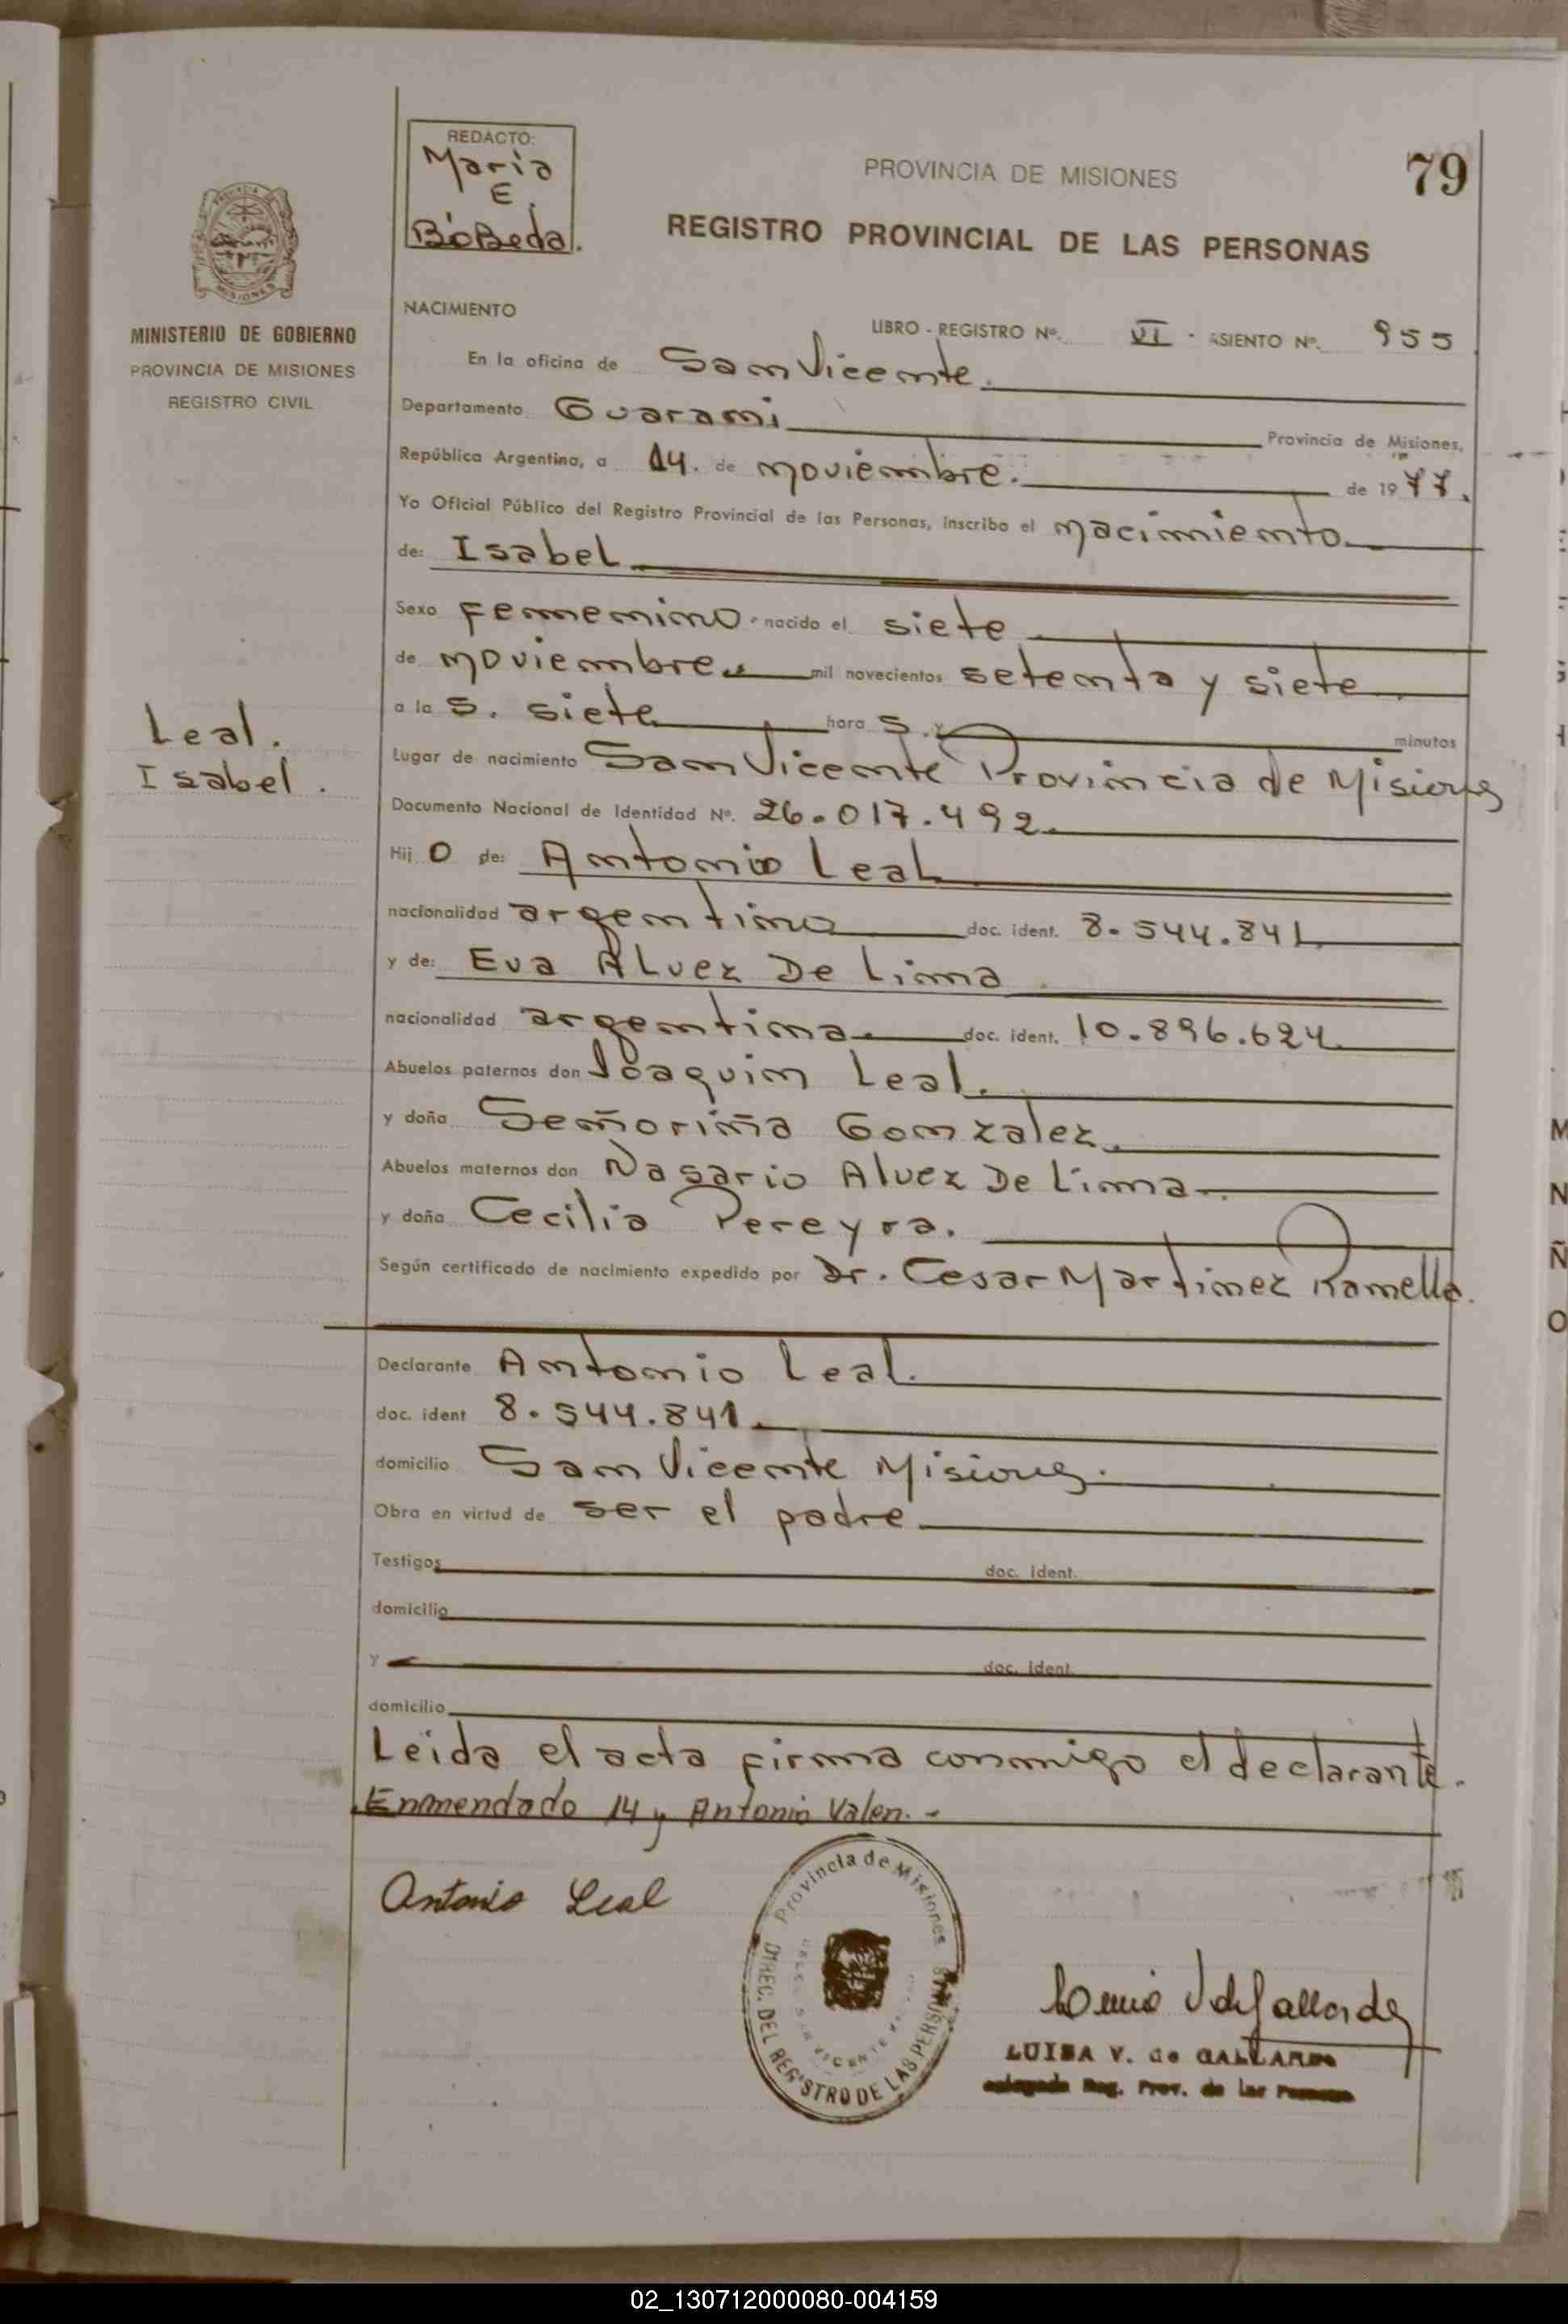 REDACTO:
Maria
E.
BóBeda.
PROVINCIA DE MISIONES
79
REGISTRO PROVINCIAL DE LAS PERSONAS
MISIONES
MINISTERIO DE GOBIERNO
PROVINCIA DE MISIONES
REGISTRO CIVIL
NACIMIENTO
LIBRO - REGISTRO Nº. VI - ASIENTO Nº. 955
En la oficina de San Vicente.
Departamento Guarani Provincia de Misiones,
República Argentina, a 14. de noviembre. de 1977.
Yo Oficial Público del Registro Provincial de las Personas, inscribo el nacimiento
de: Isabel
Sexo femenino - nacido el siete
de noviembre mil novecientos setenta y siete
a la s. siete hora s. y minutos
Leal.
Isabel.
Lugar de nacimiento San Vicente Provincia de Misiones
Documento Nacional de Identidad Nº. 26.017.492
Hij o de: Antonio Leal
nacionalidad argentino doc. ident. 8.544.841
y de: Eva Alvez De Lima
nacionalidad argentina doc. ident. 10.896.624
Abuelos paternos don Joaquin Leal.
y doña Señoriña Gonzalez.
Abuelos maternos don Nasario Alvez De Lima
y doña Cecilia Pereyra.
Según certificado de nacimiento expedido por Dr. Cesar Martinez Ramella.
Declarante Antonio Leal.
doc. ident 8.544.841.
domicilio San Vicente Misiones.
Obra en virtud de ser el padre
Testigos doc. ident.
domicilio
y doc. ident.
domicilio
Leida el acta firma conmigo el declarante.
Enmendado 14 y Antonio Valen. -
Antonio Leal
Provincia de Misiones
DIREC. DEL REGISTRO DE LAS PERSONAS
SAN VICENTE
LUISA V. de GALLARDO
Reg. Prov. de las Personas
M
N
Ñ
O
02_130712000080-004159